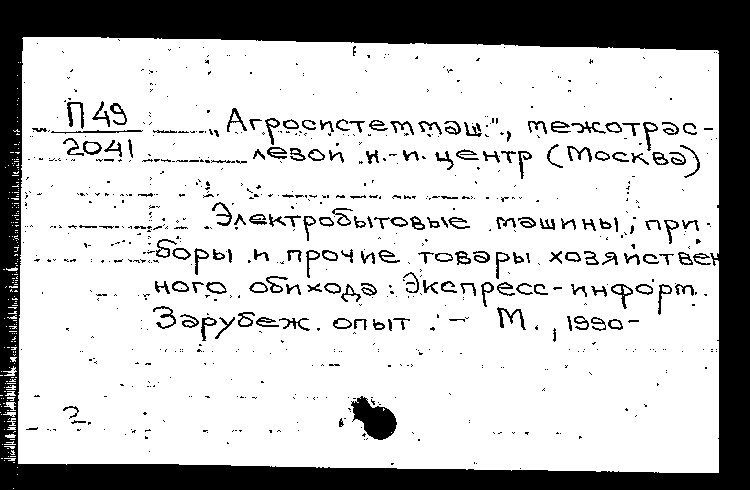 П 49
2041
„Агросистеммаш", межотрас-
левой н.-п. центр (Москва)
Электробытовые машины, при-
боры и прочие товары хозяйствен
ного обихода: Экспресс-информ.
Зарубеж. опыт. - М., 1990-
2